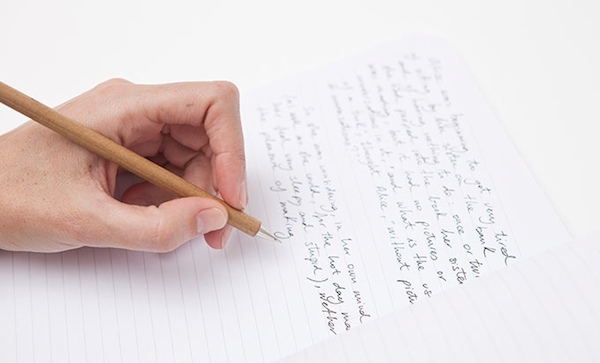 Alice was beginning to get very tird
of sitting by her sister on the bank
and of having nothing to do: once or twi
she had peeped into the book her sister
was reading, but it had no pictures or
conversations in it, and what is the us
of a book, thought Alice, without pictu
conversations?
So she was considering, in her own mind
(as well as she could, for the hot day ma
her feel very sleepy and stupid), wether
the pleasure of making